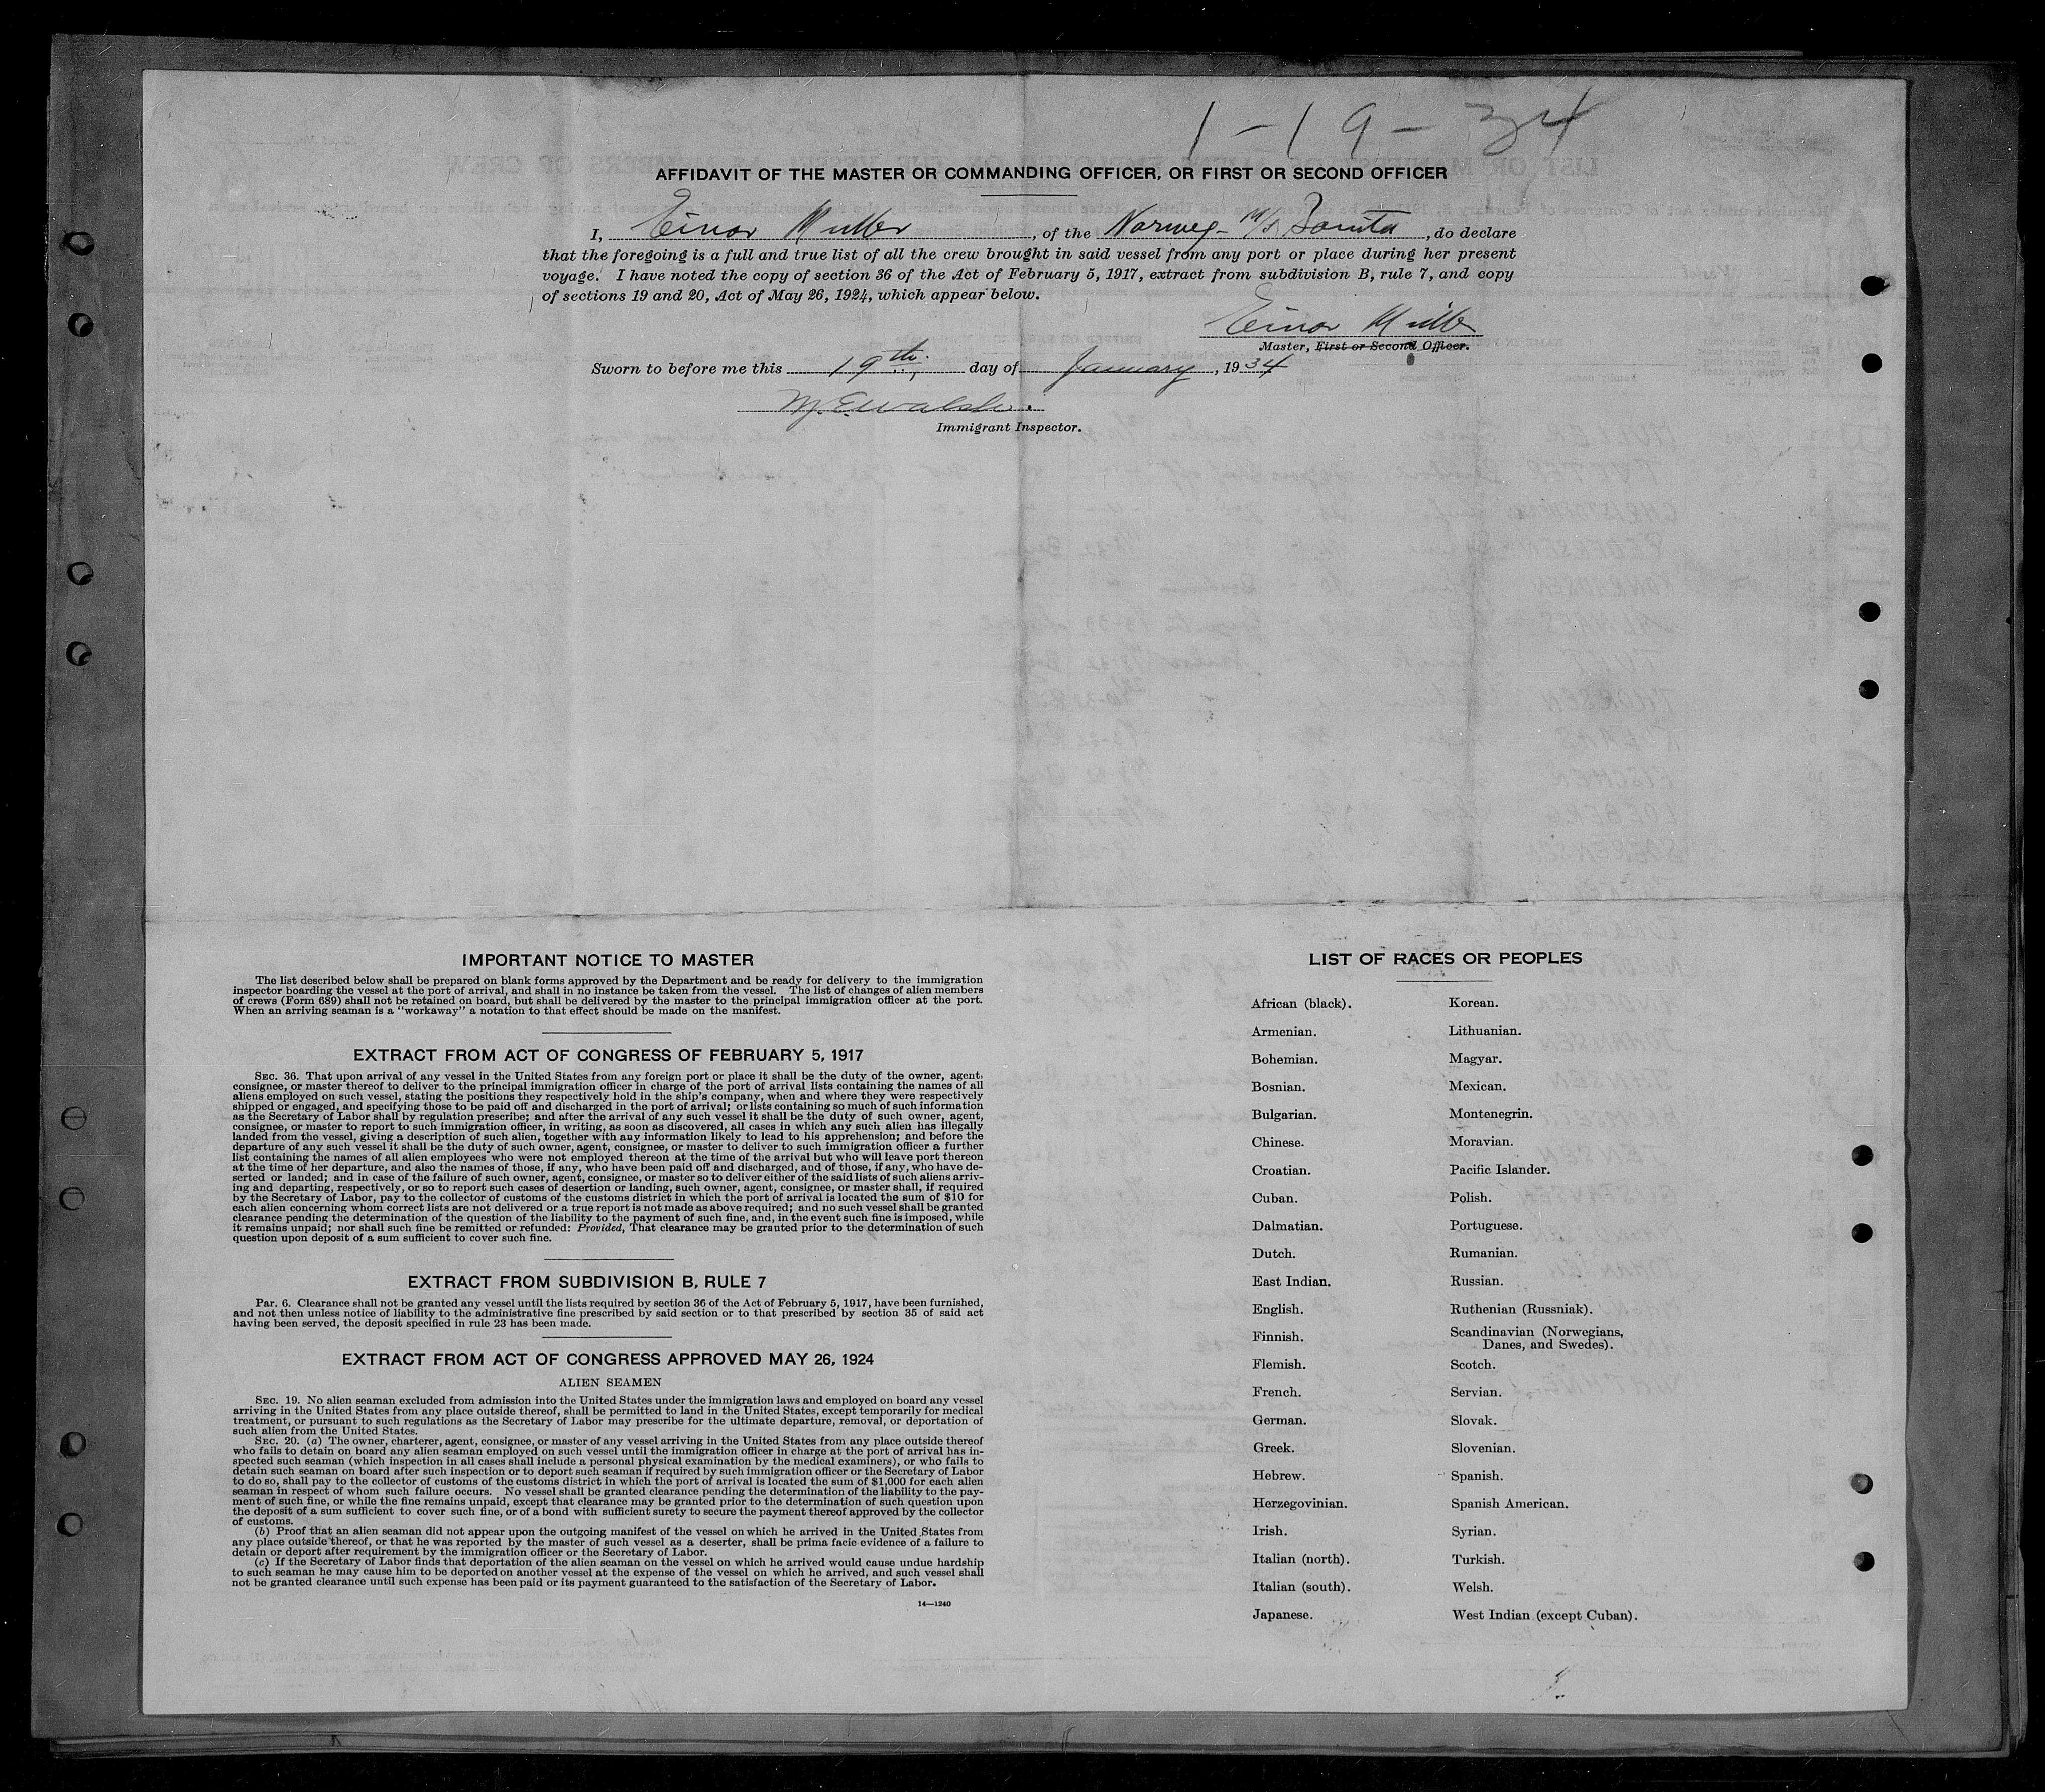 1-19-34
AFFIDAVIT OF THE MASTER OR COMMANDING OFFICER, OR FIRST OR SECOND OFFICER
I, Einar Muller, of the Norweg- M/S, do declare
that the foregoing is a full and true list of all the crew brought in said vessel from any port or place during her present
voyage. I have noted the copy of section 36 of the Act of February 5, 1917, extract from subdivision B, rule 7, and copy
of sections 19 and 20, Act of May 26, 1924, which appear below.
Einar Muller
Master, First or Second Officer.
Sworn to before me this 19th day of January, 1934
M.E. Walsh.
Immigrant Inspector.
IMPORTANT NOTICE TO MASTER
The list described below shall be prepared on blank forms approved by the Department and be ready for delivery to the immigration
inspector boarding the vessel at the port of arrival, and shall in no instance be taken from the vessel. The list of changes of alien members
of crews (Form 689) shall not be retained on board, but shall be delivered by the master to the principal immigration officer at the port.
When an arriving seaman is a "workaway" a notation to that effect should be made on the manifest.
EXTRACT FROM ACT OF CONGRESS OF FEBRUARY 5, 1917
SEC. 36. That upon arrival of any vessel in the United States from any foreign port or place it shall be the duty of the owner, agent,
consignee, or master thereof to deliver to the principal immigration officer in charge of the port of arrival lists containing the names of all
aliens employed on such vessel, stating the positions they respectively hold in the ship's company, when and where they were respectively
shipped or engaged, and specifying those to be paid off and discharged in the port of arrival; or lists containing so much of such information
as the Secretary of Labor shall by regulation prescribe; and after the arrival of any such vessel it shall be the duty of such owner, agent,
consignee, or master to report to such immigration officer, in writing, as soon as discovered, all cases in which any such alien has illegally
landed from the vessel, giving a description of such alien, together with any information likely to lead to his apprehension; and before the
departure of any such vessel it shall be the duty of such owner, agent, consignee, or master to deliver to such immigration officer a further
list containing the names of all alien employees who were not employed thereon at the time of the arrival but who will leave port thereon
at the time of her departure, and also the names of those, if any, who have been paid off and discharged, and of those, if any, who have de-
serted or landed; and in case of the failure of such owner, agent, consignee, or master so to deliver either of the said lists of such aliens arriv-
ing and departing, respectively, or so to report such cases of desertion or landing, such owner, agent, consignee, or master shall, if required
by the Secretary of Labor, pay to the collector of customs of the customs district in which the port of arrival is located the sum of $10 for
each alien concerning whom correct lists are not delivered or a true report is not made as above required; and no such vessel shall be granted
clearance pending the determination of the question of the liability to the payment of such fine, and, in the event such fine is imposed, while
it remains unpaid; nor shall such fine be remitted or refunded: Provided, That clearance may be granted prior to the determination of such
question upon deposit of a sum sufficient to cover such fine.
EXTRACT FROM SUBDIVISION B, RULE 7
PAR. 6. Clearance shall not be granted any vessel until the lists required by section 36 of the Act of February 5, 1917, have been furnished,
and not then unless notice of liability to the administrative fine prescribed by said section or to that prescribed by section 35 of said act
having been served, the deposit specified in rule 23 has been made.
EXTRACT FROM ACT OF CONGRESS APPROVED MAY 26, 1924
ALIEN SEAMEN
SEC. 19. No alien seaman excluded from admission into the United States under the immigration laws and employed on board any vessel
arriving in the United States from any place outside thereof, shall be permitted to land in the United States, except temporarily for medical
treatment, or pursuant to such regulations as the Secretary of Labor may prescribe for the ultimate departure, removal, or deportation of
such alien from the United States.
SEC. 20. (a) The owner, charterer, agent, consignee, or master of any vessel arriving in the United States from any place outside thereof
who fails to detain on board any alien seaman employed on such vessel until the immigration officer in charge at the port of arrival has in-
spected such seaman (which inspection in all cases shall include a personal physical examination by the medical examiners), or who fails to
detain such seaman on board after such inspection or to deport such seaman if required by such immigration officer or the Secretary of Labor
to do so, shall pay to the collector of customs of the customs district in which the port of arrival is located the sum of $1,000 for each alien
seaman in respect of whom such failure occurs. No vessel shall be granted clearance pending the determination of the liability to the pay-
ment of such fine, or while the fine remains unpaid, except that clearance may be granted prior to the determination of such question upon
the deposit of a sum sufficient to cover such fine, or of a bond with sufficient surety to secure the payment thereof approved by the collector
of customs.
(b) Proof that an alien seaman did not appear upon the outgoing manifest of the vessel on which he arrived in the United States from
any place outside thereof, or that he was reported by the master of such vessel as a deserter, shall be prima facie evidence of a failure to
detain or deport after requirement by the immigration officer or the Secretary of Labor.
(c) If the Secretary of Labor finds that deportation of the alien seaman on the vessel on which he arrived would cause undue hardship
to such seaman he may cause him to be deported on another vessel at the expense of the vessel on which he arrived, and such vessel shall
not be granted clearance until such expense has been paid or its payment guaranteed to the satisfaction of the Secretary of Labor.
14—1240
LIST OF RACES OR PEOPLES
African (black).
Armenian.
Bohemian.
Bosnian.
Bulgarian.
Chinese.
Croatian.
Cuban.
Dalmatian.
Dutch.
East Indian.
English.
Finnish.
Flemish.
French.
German.
Greek.
Hebrew.
Herzegovinian.
Irish.
Italian (north).
Italian (south).
Japanese.
Korean.
Lithuanian.
Magyar.
Mexican.
Montenegrin.
Moravian.
Pacific Islander.
Polish.
Portuguese.
Rumanian.
Russian.
Ruthenian (Russniak).
Scandinavian (Norwegians,
Danes, and Swedes).
Scotch.
Servian.
Slovak.
Slovenian.
Spanish.
Spanish American.
Syrian.
Turkish.
Welsh.
West Indian (except Cuban).